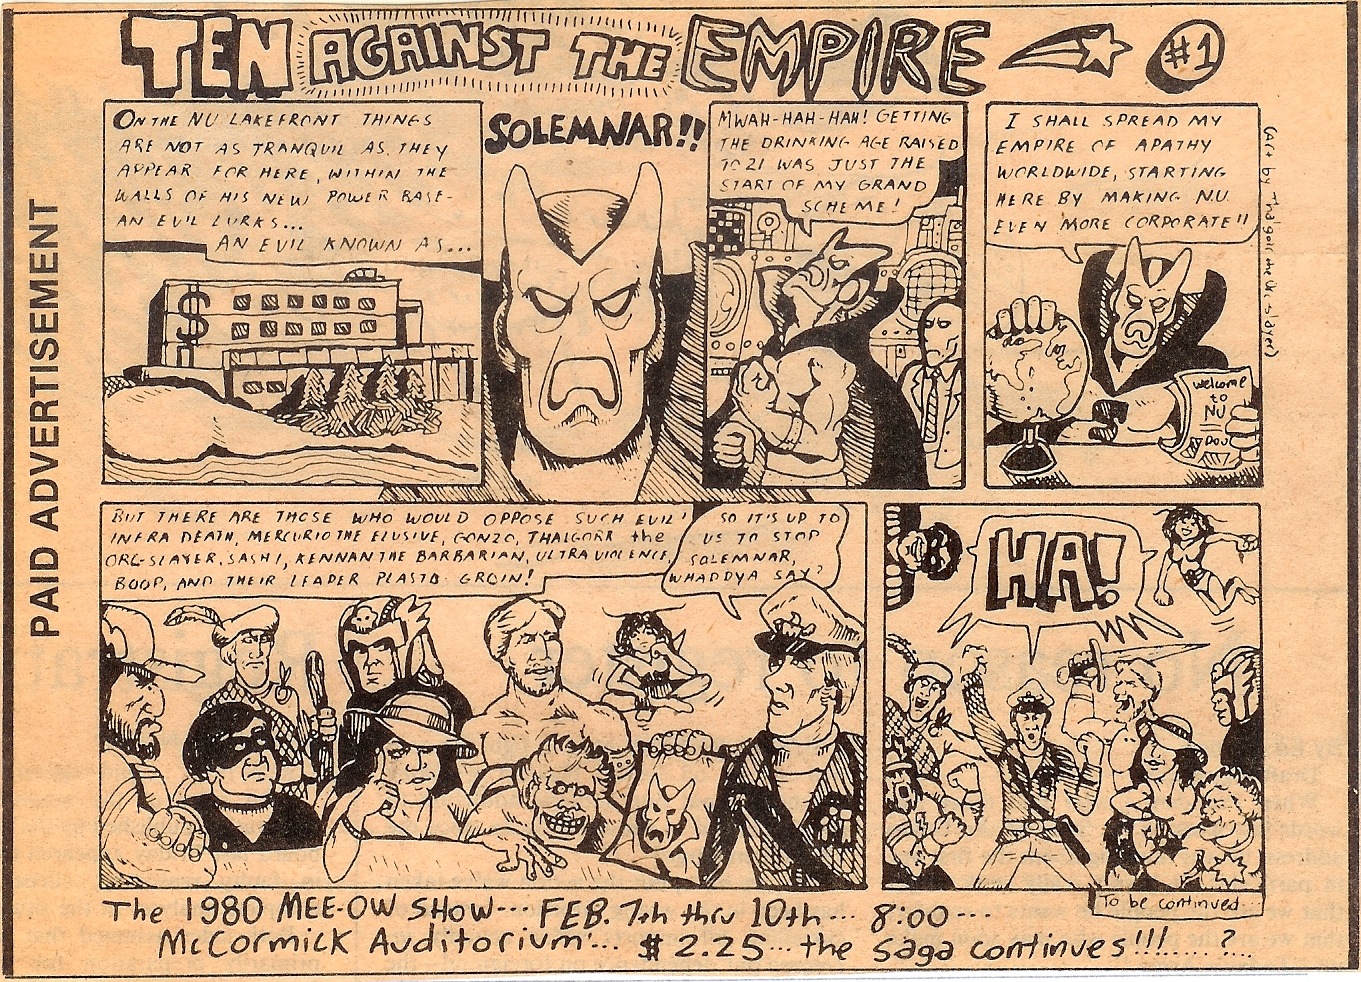 TEN AGAINST THE EMPIRE #1
PAID ADVERTISEMENT
ON THE NU LAKEFRONT THINGS
ARE NOT AS TRANQUIL AS THEY
APPEAR FOR HERE, WITHIN THE
WALLS OF HIS NEW POWER BASE-
AN EVIL LURKS...
AN EVIL KNOWN AS...
$
SOLEMNAR!!
MWAH-HAH-HAH! GETTING
THE DRINKING AGE RAISED
TO 21 WAS JUST THE
START OF MY GRAND
SCHEME!
I SHALL SPREAD MY
EMPIRE OF APATHY
WORLDWIDE, STARTING
HERE BY MAKING N.U.
EVEN MORE CORPORATE!!
welcome
to
NU
(Art by Thalgorr the Orc-slayer)
BUT THERE ARE THOSE WHO WOULD OPPOSE SUCH EVIL!
INFRA DEATH, MERCURIO THE ELUSIVE, GONZO, THALGORR the
ORC-SLAYER, SASHI, KENNAN THE BARBARIAN, ULTRA VIOLENCE,
BOOP, AND THEIR LEADER PLASTO-GROIN!
SO IT'S UP TO
US TO STOP
SOLEMNAR,
WHADDYA SAY?
HA!
To be continued...
The 1980 MEE-OW SHOW.... FEB. 7th thru 10th... 8:00....
McCormick Auditorium... $2.25... the saga continues!!!........?....